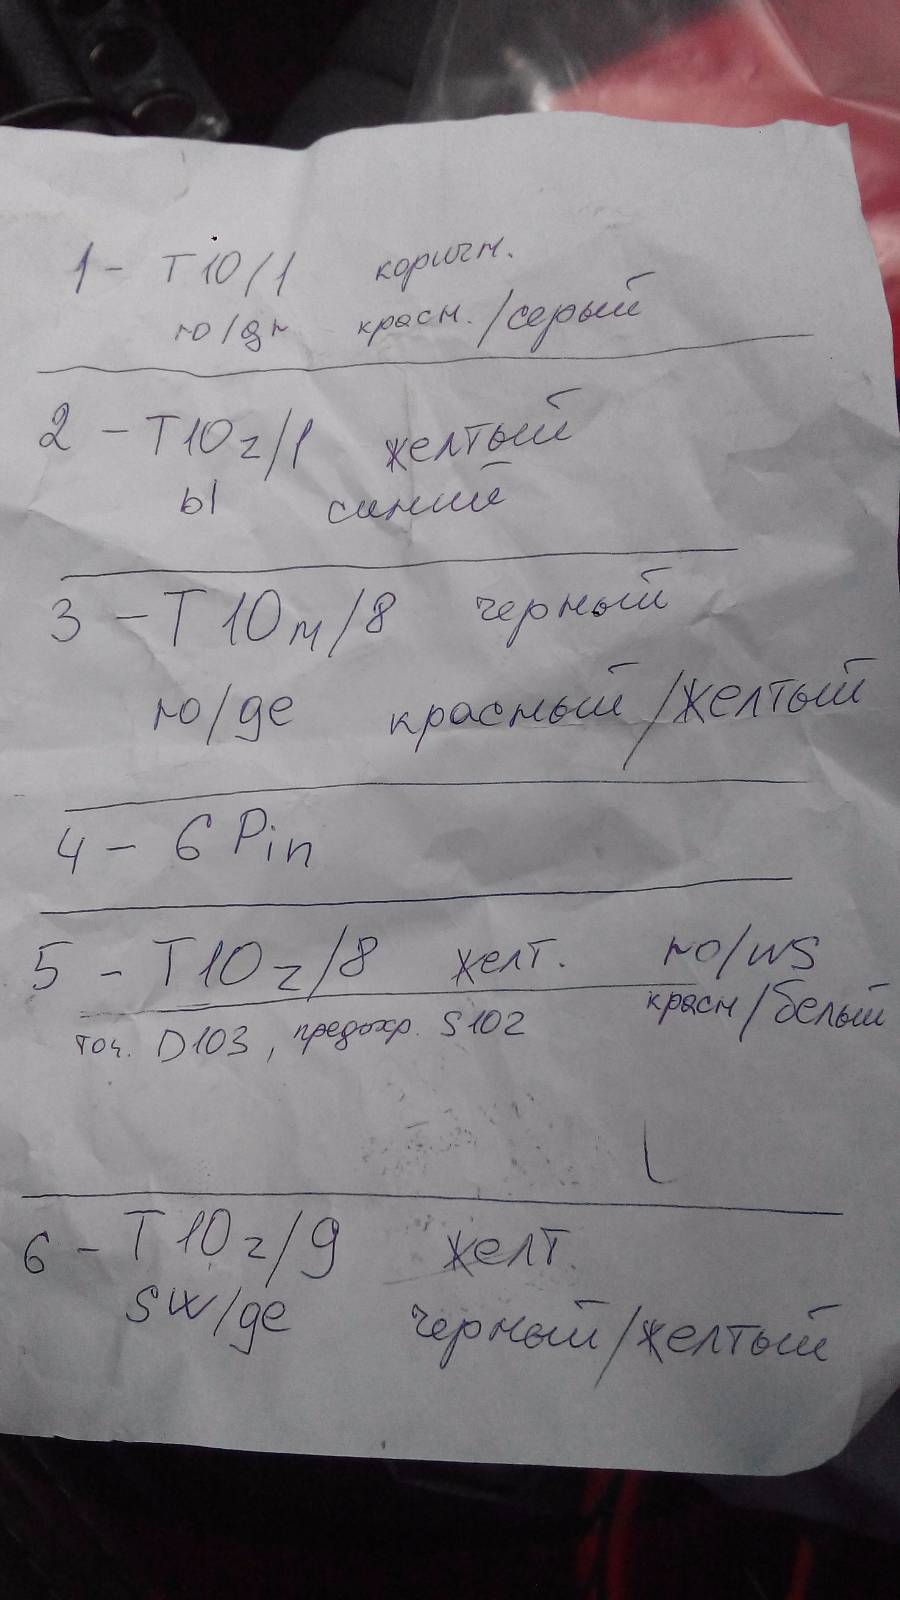 1 - T10/1 коричн.
ro/gr красн./серый
2 - T10z/1 желтый
bl синий
3 - T10м/8 черный
ro/ge красный/желтый
4 - 6 Pin
5 - T10z/8 желт. ro/ws
красн/белый
точ. D103, предохр. S102
6 - T10z/9 желт.
sw/ge черный/желтый